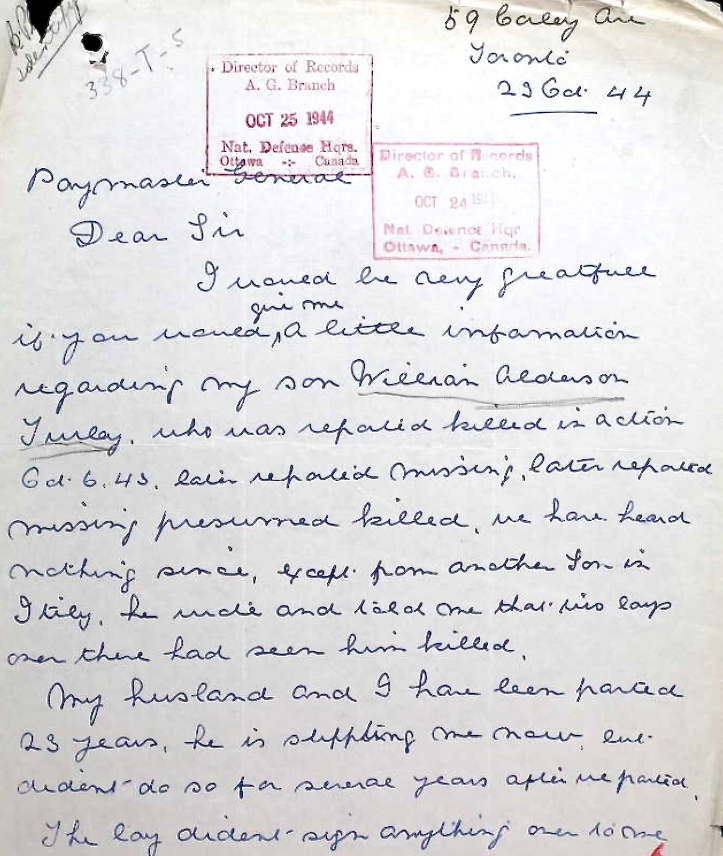 59 Corley Ave
Toronto
23 Oct. 44
338-T-5
Director of Records
A. G. Branch
OCT 25 1944
Nat. Defense Hqrs.
Ottawa -:- Canada
Director of Records
A. G. Branch.
OCT 24
Nat. Defence Hqr
Ottawa, - Canada.
Paymaster General
Dear Sir
I woued be very greatfull
give me
if you woued, a little infamation
regarding my son William Alderson
Turley. who was repoted killed in action
Oct. 6. 43. later repoted missing, later repoted
missing presumed killed, we have heard
nothing since, except from another Son in
Itily, he wrote and told me that two boys
over there had seen him killed.
My husband and I have been parted
23 years, he is supporting me now, but
dident do so for several years after we parted.
The boy dident sign anything over to me